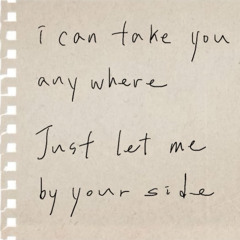 i can take you
any where
Just let me
by your side